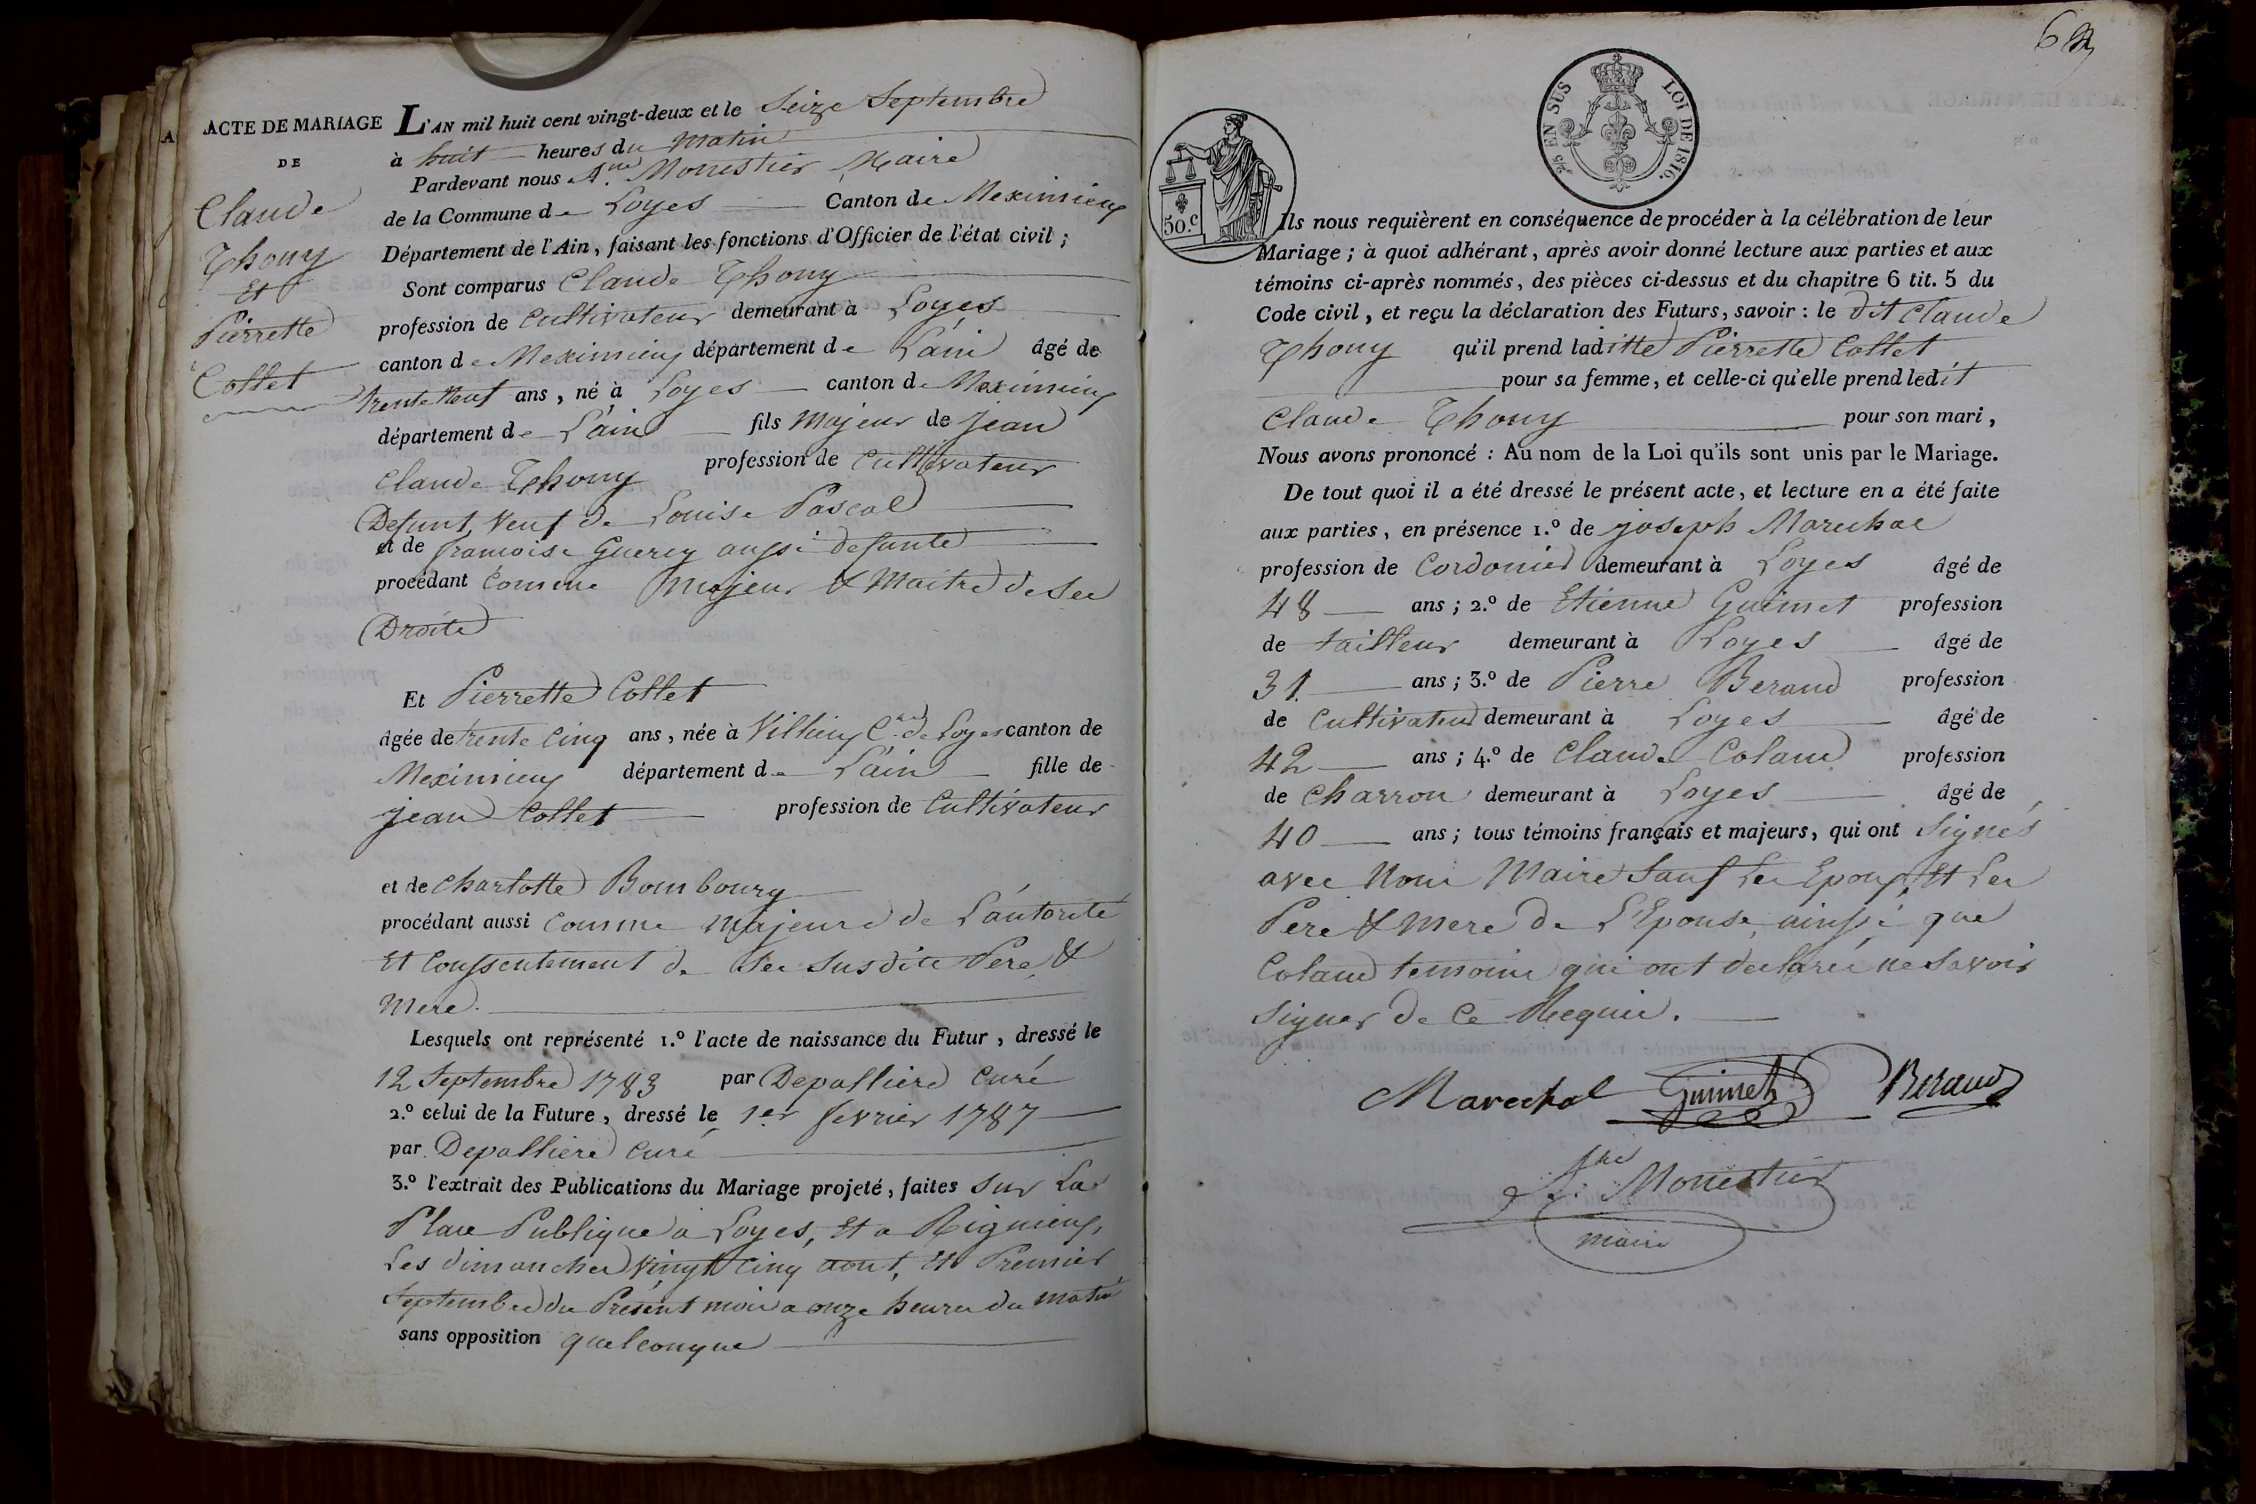 ACTE DE MARIAGE
DE
Claude
Thony
Et
Pierrette
Collet
L'AN mil huit cent vingt-deux et le Seize Septembre
à huit heures du Matin
Pardevant nous Ane. Monestier Maire
de la Commune de Loyes Canton de Meximieux
Département de l'Ain, faisant les fonctions d'Officier de l'état civil ;
Sont comparus Claude Thony
profession de Cultivateur demeurant à Loyes
canton de Meximieux département de L'ain âgé de
trente neuf ans, né à Loyes canton de Meximieux
département de L'ain fils Majeur de Jean
Claude Thony profession de Cultivateur
Defunt, Veuf de Louise Pascal
et de francoise Guerey aussi defunte
procédant Comme Majeur & Maitre de Ses
Droits
Et Pierrette Collet
âgée de trente Cinq ans, née à Villieux Cne. de Loyes canton de
Meximieux département de L'ain fille de
Jean Collet profession de Cultivateur
et de Charlotte Bombourg
procédant aussi Comme Majeure de L'autorité
Et Conssentement de Ses Susdits Pere &
Mere.
Lesquels ont représenté 1.º l'acte de naissance du Futur, dressé le
12 Septembre 1783 par Depalliere Curé
2.º celui de la Future, dressé le 1er fevrier 1787
par Depalliere Curé
3.º l'extrait des Publications du Mariage projeté, faites Sur La
Place Publique a Loyes, Et a Rignieux,
Les dimanches Vingt Cinq aout, Et Premier
Septembre du Présent mois a onze heures du Matin
sans opposition quelconque
2/5 EN SUS LOI DE 1816.
50.c
Ils nous requièrent en conséquence de procéder à la célébration de leur
Mariage ; à quoi adhérant, après avoir donné lecture aux parties et aux
témoins ci-après nommés, des pièces ci-dessus et du chapitre 6 tit. 5 du
Code civil, et reçu la déclaration des Futurs, savoir : le dit Claude
Thony qu'il prend laditte Pierrette Collet
pour sa femme, et celle-ci qu'elle prend ledit
Claude Thony pour son mari,
Nous avons prononcé : Au nom de la Loi qu'ils sont unis par le Mariage.
De tout quoi il a été dressé le présent acte, et lecture en a été faite
aux parties, en présence 1.º de joseph Marechal
profession de Cordonier demeurant à Loyes âgé de
48 ans ; 2.º de Etienne Guimet profession
de tailleur demeurant à Loyes âgé de
31 ans ; 3.º de Pierre Beraud profession
de Cultivateur demeurant à Loyes âgé de
42 ans ; 4.º de Claude Coland profession
de Charron demeurant à Loyes âgé de
40 ans ; tous témoins français et majeurs, qui ont Signés
avec Nous Maire Sauf Les Epoux, Et Les
Pere & Mere de L'Epouse, ainssi que
Coland temoins qui ont declarés ne Savoir
Signer de Ce Requis.
Marechal Guimet Beraud
Ane. Monestier
maire